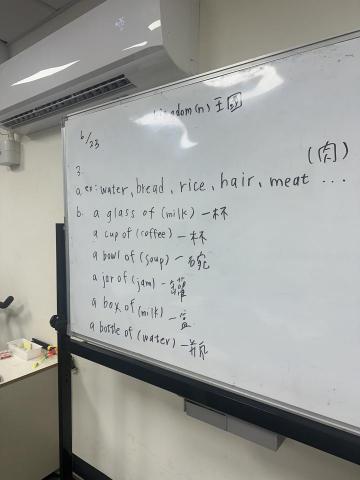 kingdom(n) 王國
6/23
(肉)
3.
a. ex: water、bread、rice、hair、meat ...
b. a glass of (milk) 一杯
a cup of (coffee) 一杯
a bowl of (soup) 一碗
a jar of (jam) 一罐
a box of (milk) 一盒
a bottle of (water) 一瓶